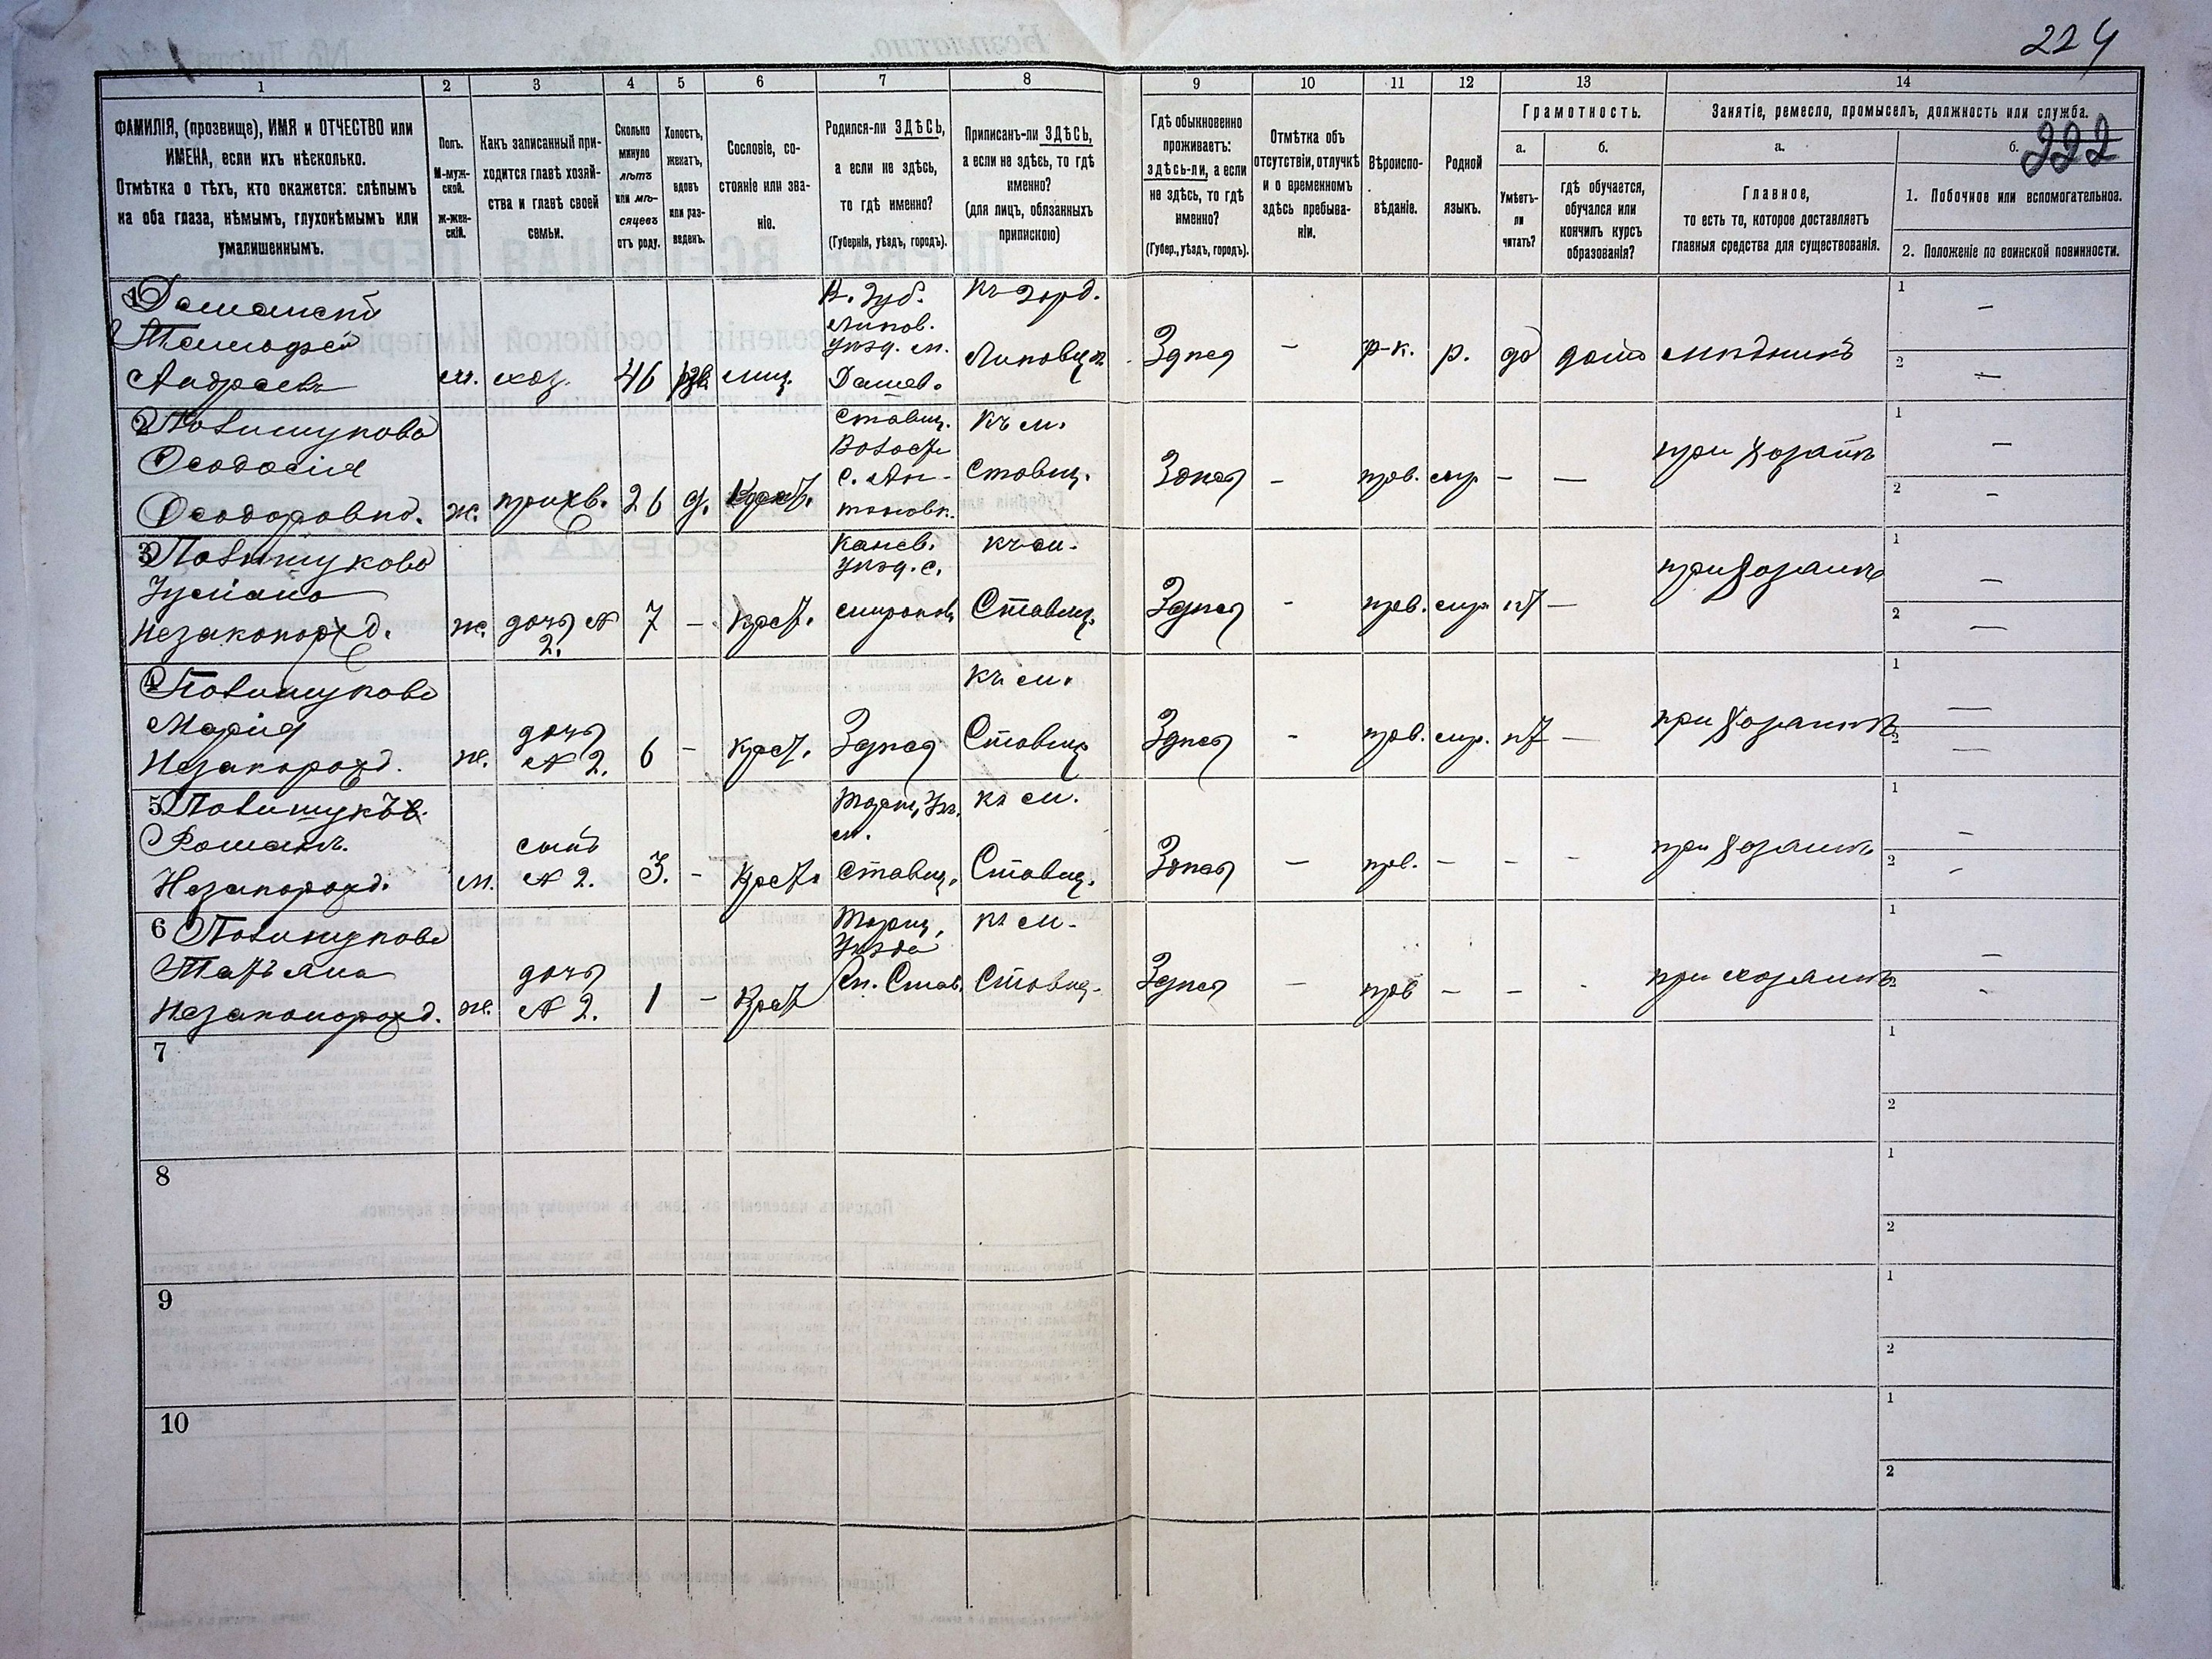 224
1
2
3
4
5
6
7
8
9
10
11
12
13
14
ФАМИЛІЯ, (прозвище), ИМЯ и ОТЧЕСТВО или
ИМЕНА, если ихъ нѣсколько.
Отмѣтка о тѣхъ, кто окажется: слѣпымъ
на оба глаза, нѣмымъ, глухонѣмымъ или
умалишеннымъ.
Полъ.
М-муж-
ской.
Ж-жен-
скій.
Какъ записанный при-
ходится главѣ хозяй-
ства и главѣ своей
семьи.
Сколько
минуло
лѣтъ
или мѣ-
сяцевъ
отъ роду.
Холостъ,
женатъ,
вдовъ
или раз-
веденъ.
Сословіе, со-
стояніе или зва-
ніе.
Родился-ли ЗДѢСЬ,
а если не здѣсь,
то гдѣ именно?
(Губернія, уѣздъ, городъ).
Приписанъ-ли ЗДѢСЬ,
а если не здѣсь, то гдѣ
именно?
(для лицъ, обязанныхъ
припискою)
Гдѣ обыкновенно
проживаетъ:
здѣсь-ли, а если
не здѣсь, то гдѣ
именно?
(Губер., уѣздъ, городъ).
Отмѣтка объ
отсутствіи, отлучкѣ
и о временномъ
здѣсь пребыва-
ніи.
Вѣроиспо-
вѣданіе.
Родной
языкъ.
Грамотность.
а.
Умѣетъ-
ли
читать?
б.
гдѣ обучается,
обучался или
кончилъ курсъ
образованія?
Занятіе, ремесло, промыселъ, должность или служба.
222
а.
Главное,
то есть то, которое доставляетъ
главныя средства для существованія.
б.
1. Побочное или вспомогательное.
2. Положеніе по воинской повинности.
1
Андреевъ
м. хоз. 46 мѣщ.
К. Губ.
Липов.
Уѣзд. м.
Дашев.
Къ горд.
Липовцу
Здѣсь - р-к. р. да дома мѣдникъ
1 -
2 -
2 Полищукова
Феодосія
Феодоровна. ж. 26 д. Крест.
Ставищ.
Волости
с.
Къ м.
Ставищ.
Здѣсь - прав. мр. - - при хозяинѣ
1 -
2 -
3 Полищукова
незаконорожд. ж. дочь №
2.
7 - Крест.
Канев.
Уѣзд. с.
Къ м.
Ставищ.
Здѣсь - прав. мр. нѣт - при хозяинѣ
1 -
2 -
4 Полищукова
Марія
Незаконорожд. ж. дочь
№ 2. 6 - Крест. Здѣсь
Къ м.
Ставищ
Здѣсь - прав. мр. нѣт - при хозяинѣ
1 -
2 -
5 Полищукъ
Романъ.
Незаконорожд. м. сынъ
№ 2. 3. - Крест.
м.
Ставищ.
Къ м.
Ставищ.
Здѣсь - прав. - - - при хозяинѣ
1 -
2 -
6 Полищукова
Татьяна
Незаконорожд. ж. дочь
№ 2. 1 - Крест
Уѣзда
м. Став.
Къ м.
Ставищ.
Здѣсь - прав - - - при хозяинѣ
1 -
2 -
7
1
2
8
1
2
9
1
2
10
1
2